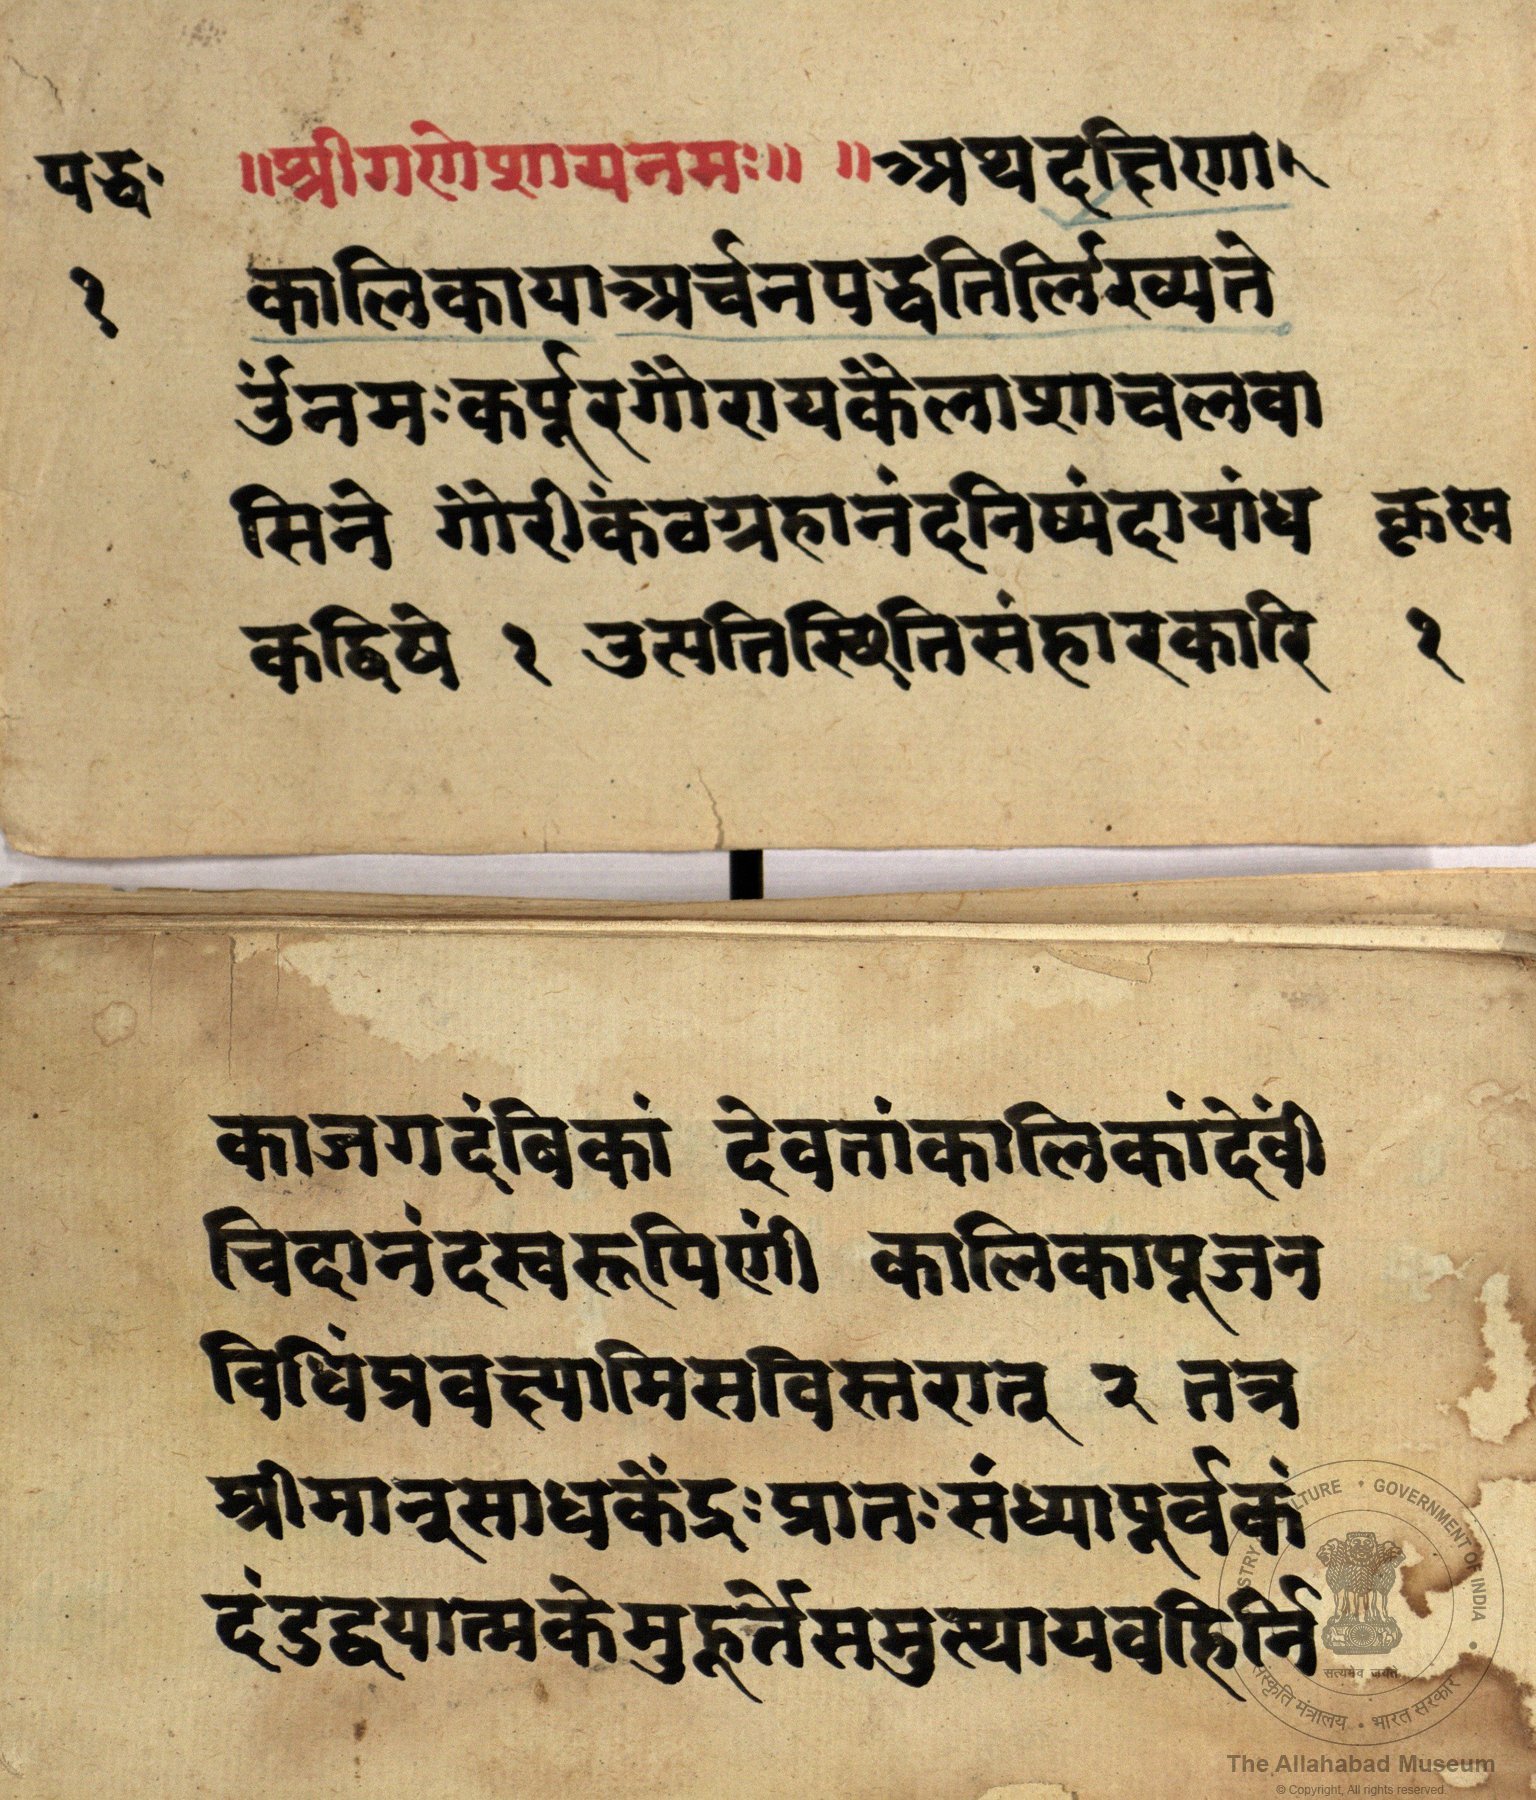 पद्ध॰ ॥श्रीगणेशायनमः॥ ॥अथदक्षिणा
१ कालिकायाअर्चनपद्धतिर्लिख्यते
ॐनमःकर्पूरगौरायकैलाशाचलवा
सिने गौरीकंवग्रहानंदनिष्यंदायांध कृत्म
कद्विषे १ उत्पतिस्थितिसंहारकारि १
काजगदंबिकां देवतांकालिकांदेवीं
चिदानंदस्वरूपिणीं कालिकापूजन
विधिंप्रवक्ष्यामिसविस्तरात् २ तत्र
श्रीमान्साधकेंद्रःप्रातःसंध्यापूर्वकं
दंडद्वयात्मकेमुहूर्तेसमुत्थायवहिर्नि
MINISTRY OF CULTURE • GOVERNMENT OF INDIA
सत्यमेव जयते
संस्कृति मंत्रालय • भारत सरकार
The Allahabad Museum
© Copyright, All rights reserved.